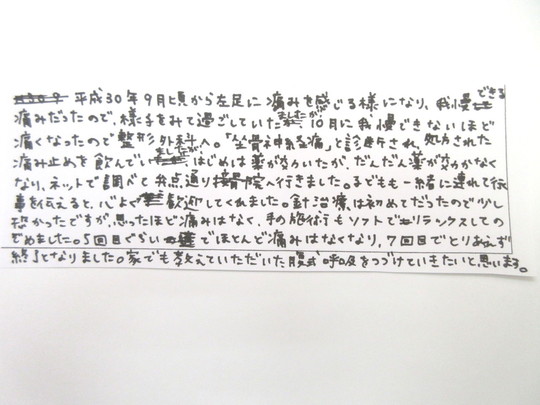 平成30年9月頃から左足に痛みを感じる様になり、我慢できる
痛みだったので、様子をみて過ごしていましたが、10月に我慢できないほど
痛くなったので整形外科へ。「坐骨神経痛」と診断され、処方された
痛み止めを飲んでいましたが、はじめは薬が効いたが、だんだん薬が効かなく
なり、ネットで調べて弁点通り接骨院へ行きました。子どもも一緒に連れて行
事を伝えると、心よく歓迎してくれました。針治療は初めてだったので少し
恐かったですが、思ったほど痛みはなく、手の施術もソフトでリラックスしての
ぞめました。5回目ぐらいでほとんど痛みはなくなり、7回目でとりあえず
終了となりました。家でも教えていただいた腹式呼吸をつづけていきたいと思います。